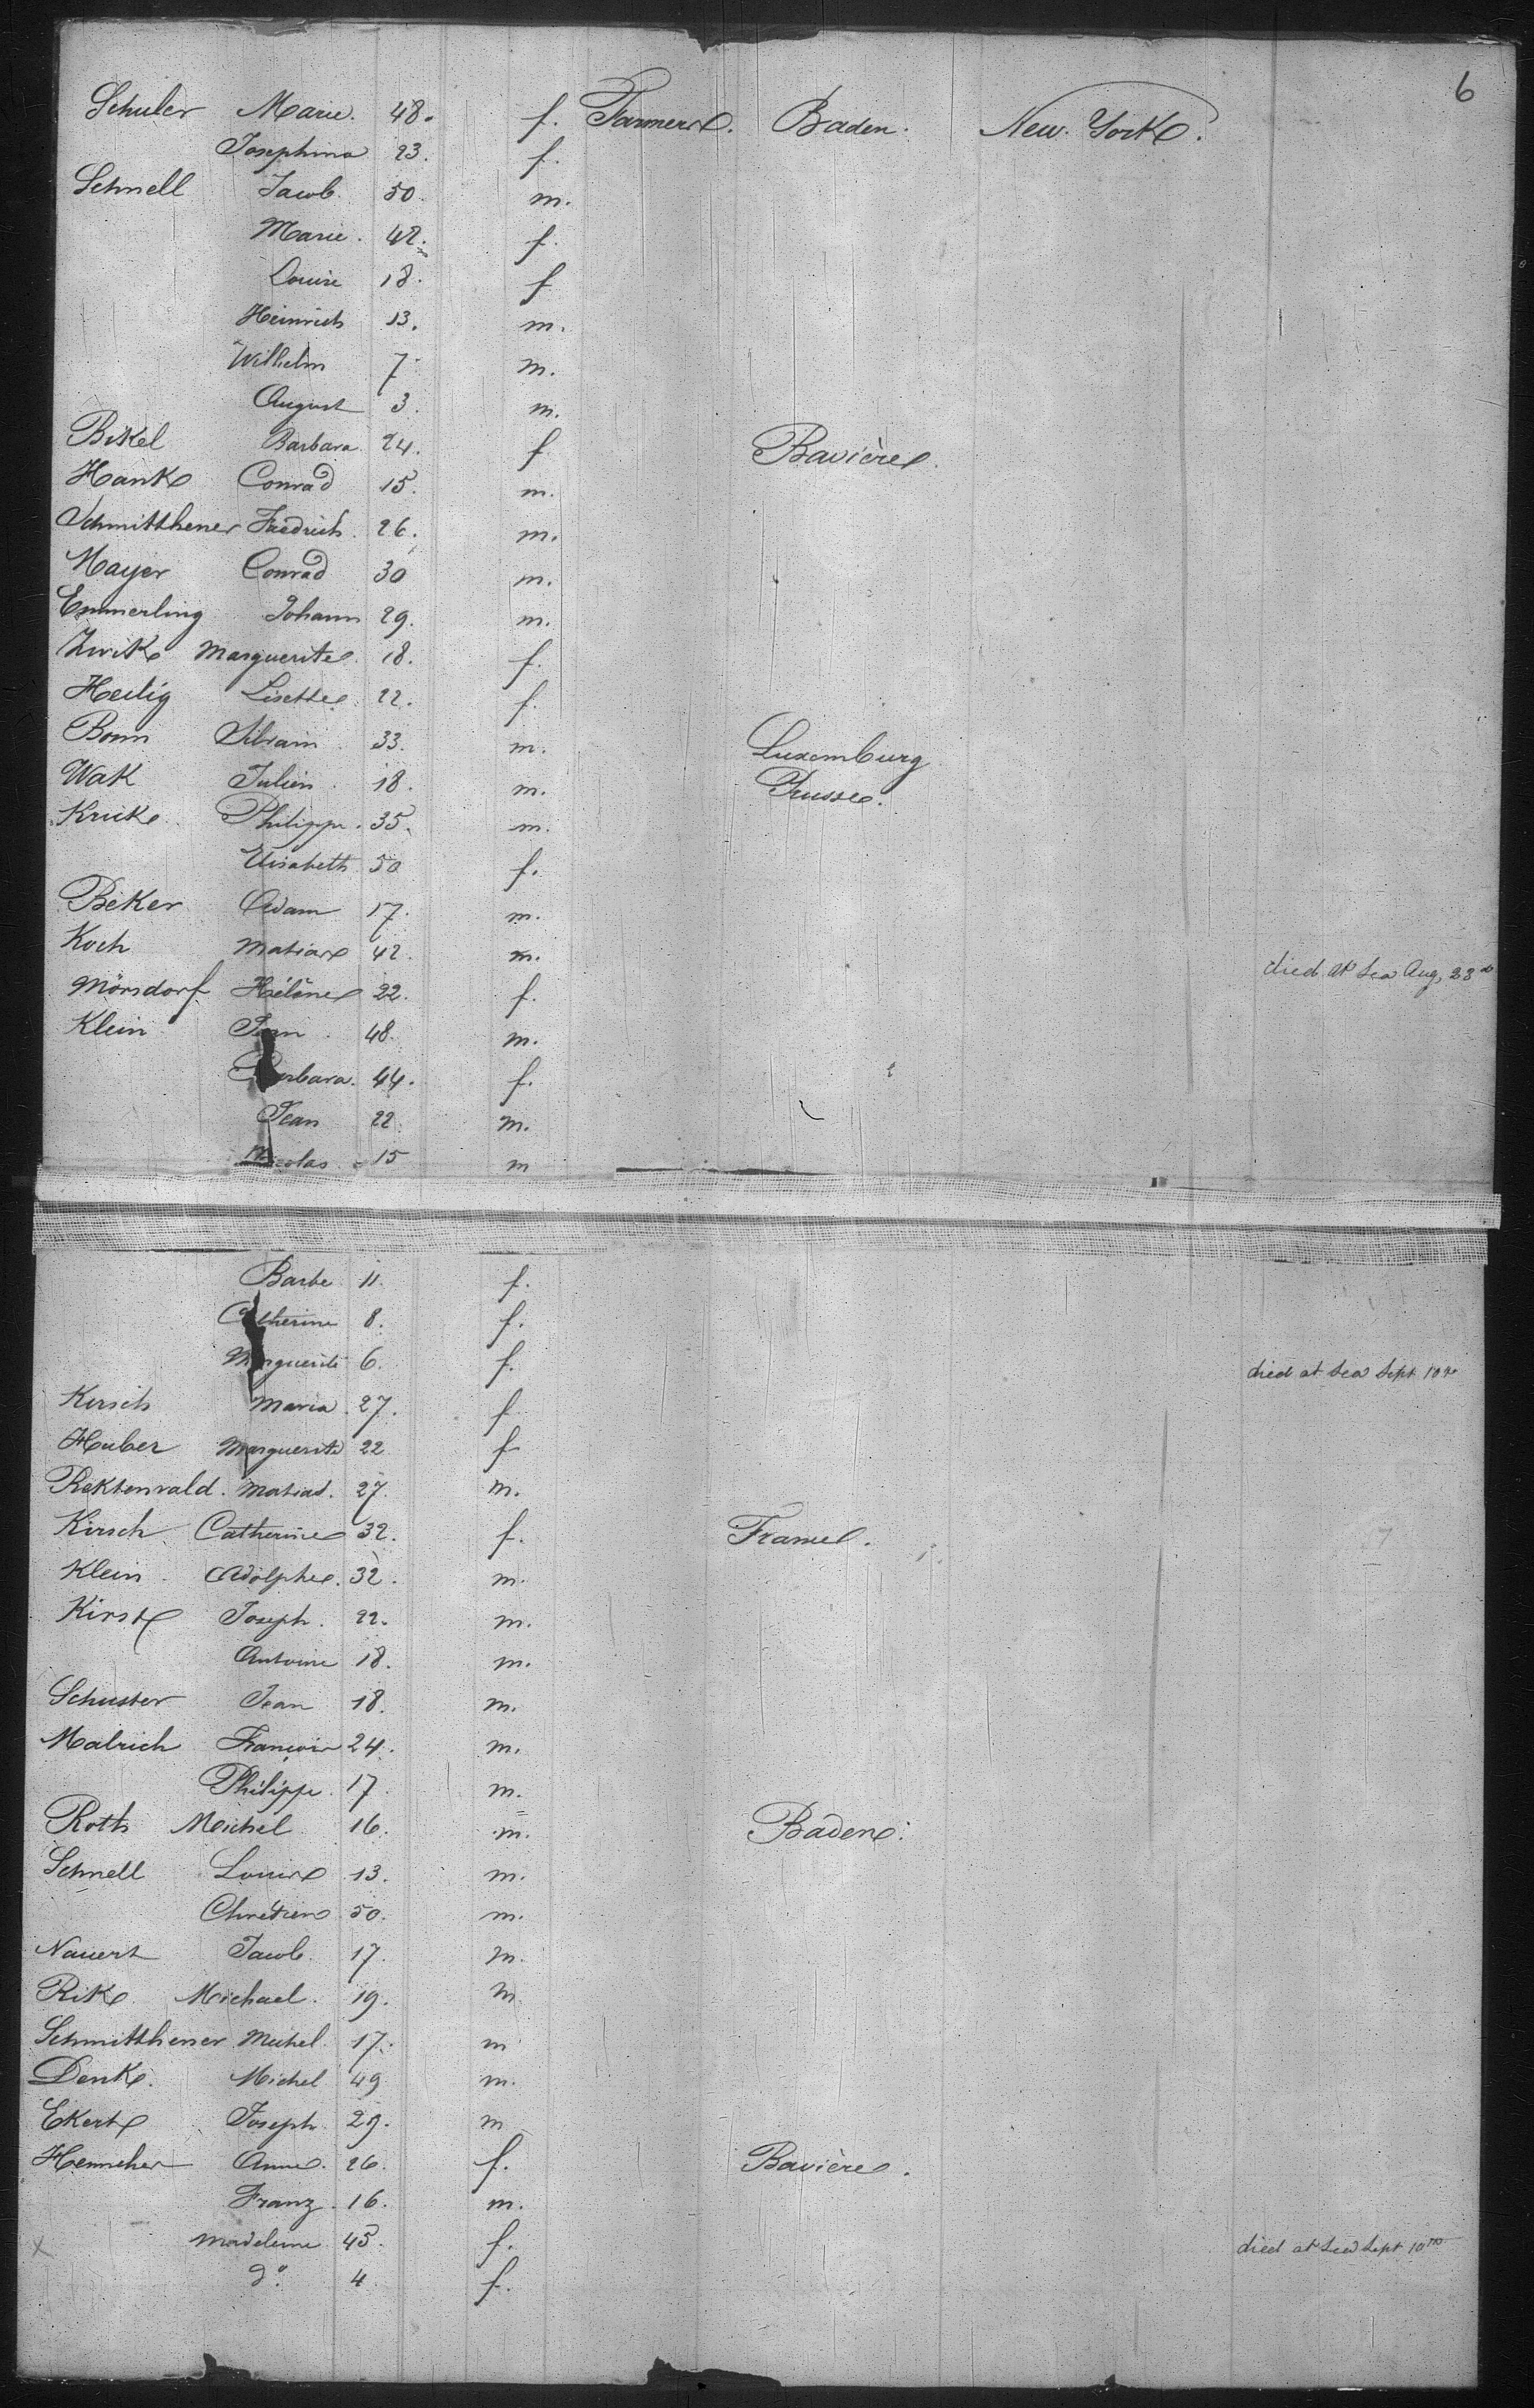 6
Schuler Marie. 48. f. Farmers. Baden. New. York.
Josephina 23. f.
Schnell Jacob. 50. m.
Marie. 42. f.
Louise 18. f
Heinrich 13. m.
Wilhelm 7. m.
August 3. m.
Bikel Barbara 24. f Bavière.
Hank Conrad 15. m.
Schmitthener Friedrich. 26. m.
Mayer Conrad 30 m.
Emmerling Johann 29. m.
Zwik Marguerite. 18. f.
Heilig Lisette. 22. f.
Bonn Silvain. 33. m. Luxemburg
Wak Julien. 18. m. Prusse.
Krick Philippe. 35. m.
Elisabeth 50 f.
Beker Adam 17. m.
Koch Matias 42. m. died at Sea Aug, 23d
Mörsdorf Hélène 22. f.
Klein Jean. 48. m.
Barbara. 44. f.
Jean 22. m.
Nicolas. 15 m
Barbe 11. f.
Catherine 8. f.
Marguerite 6. f. died at Sea Sept 10th
Kirsch Maria. 27. f
Huber Marguerite 22 f
Rektenvald. Matias. 27. m.
Kirsch Catherine 32. f. France.
Klein. Adolphe. 32. m.
Kirst Joseph. 22. m.
Antoine 18. m.
Schuster Jean 18. m.
Malrich François 24. m.
Philippe. 17. m.
Roth Michel 16. m. Baden.
Schnell Louis 13. m.
Chrétien 50. m.
Nauert Jacob. 17. m.
Rik Michael. 19. m
Schmitthener Michel. 17. m
Denk. Michel 49 m.
Ekert Joseph. 29. m
Henneher Anne. 26. f. Bavière.
Franz. 16. m.
x Madeleine 45. f. died at Sea Sept 10th
do. 4 f.